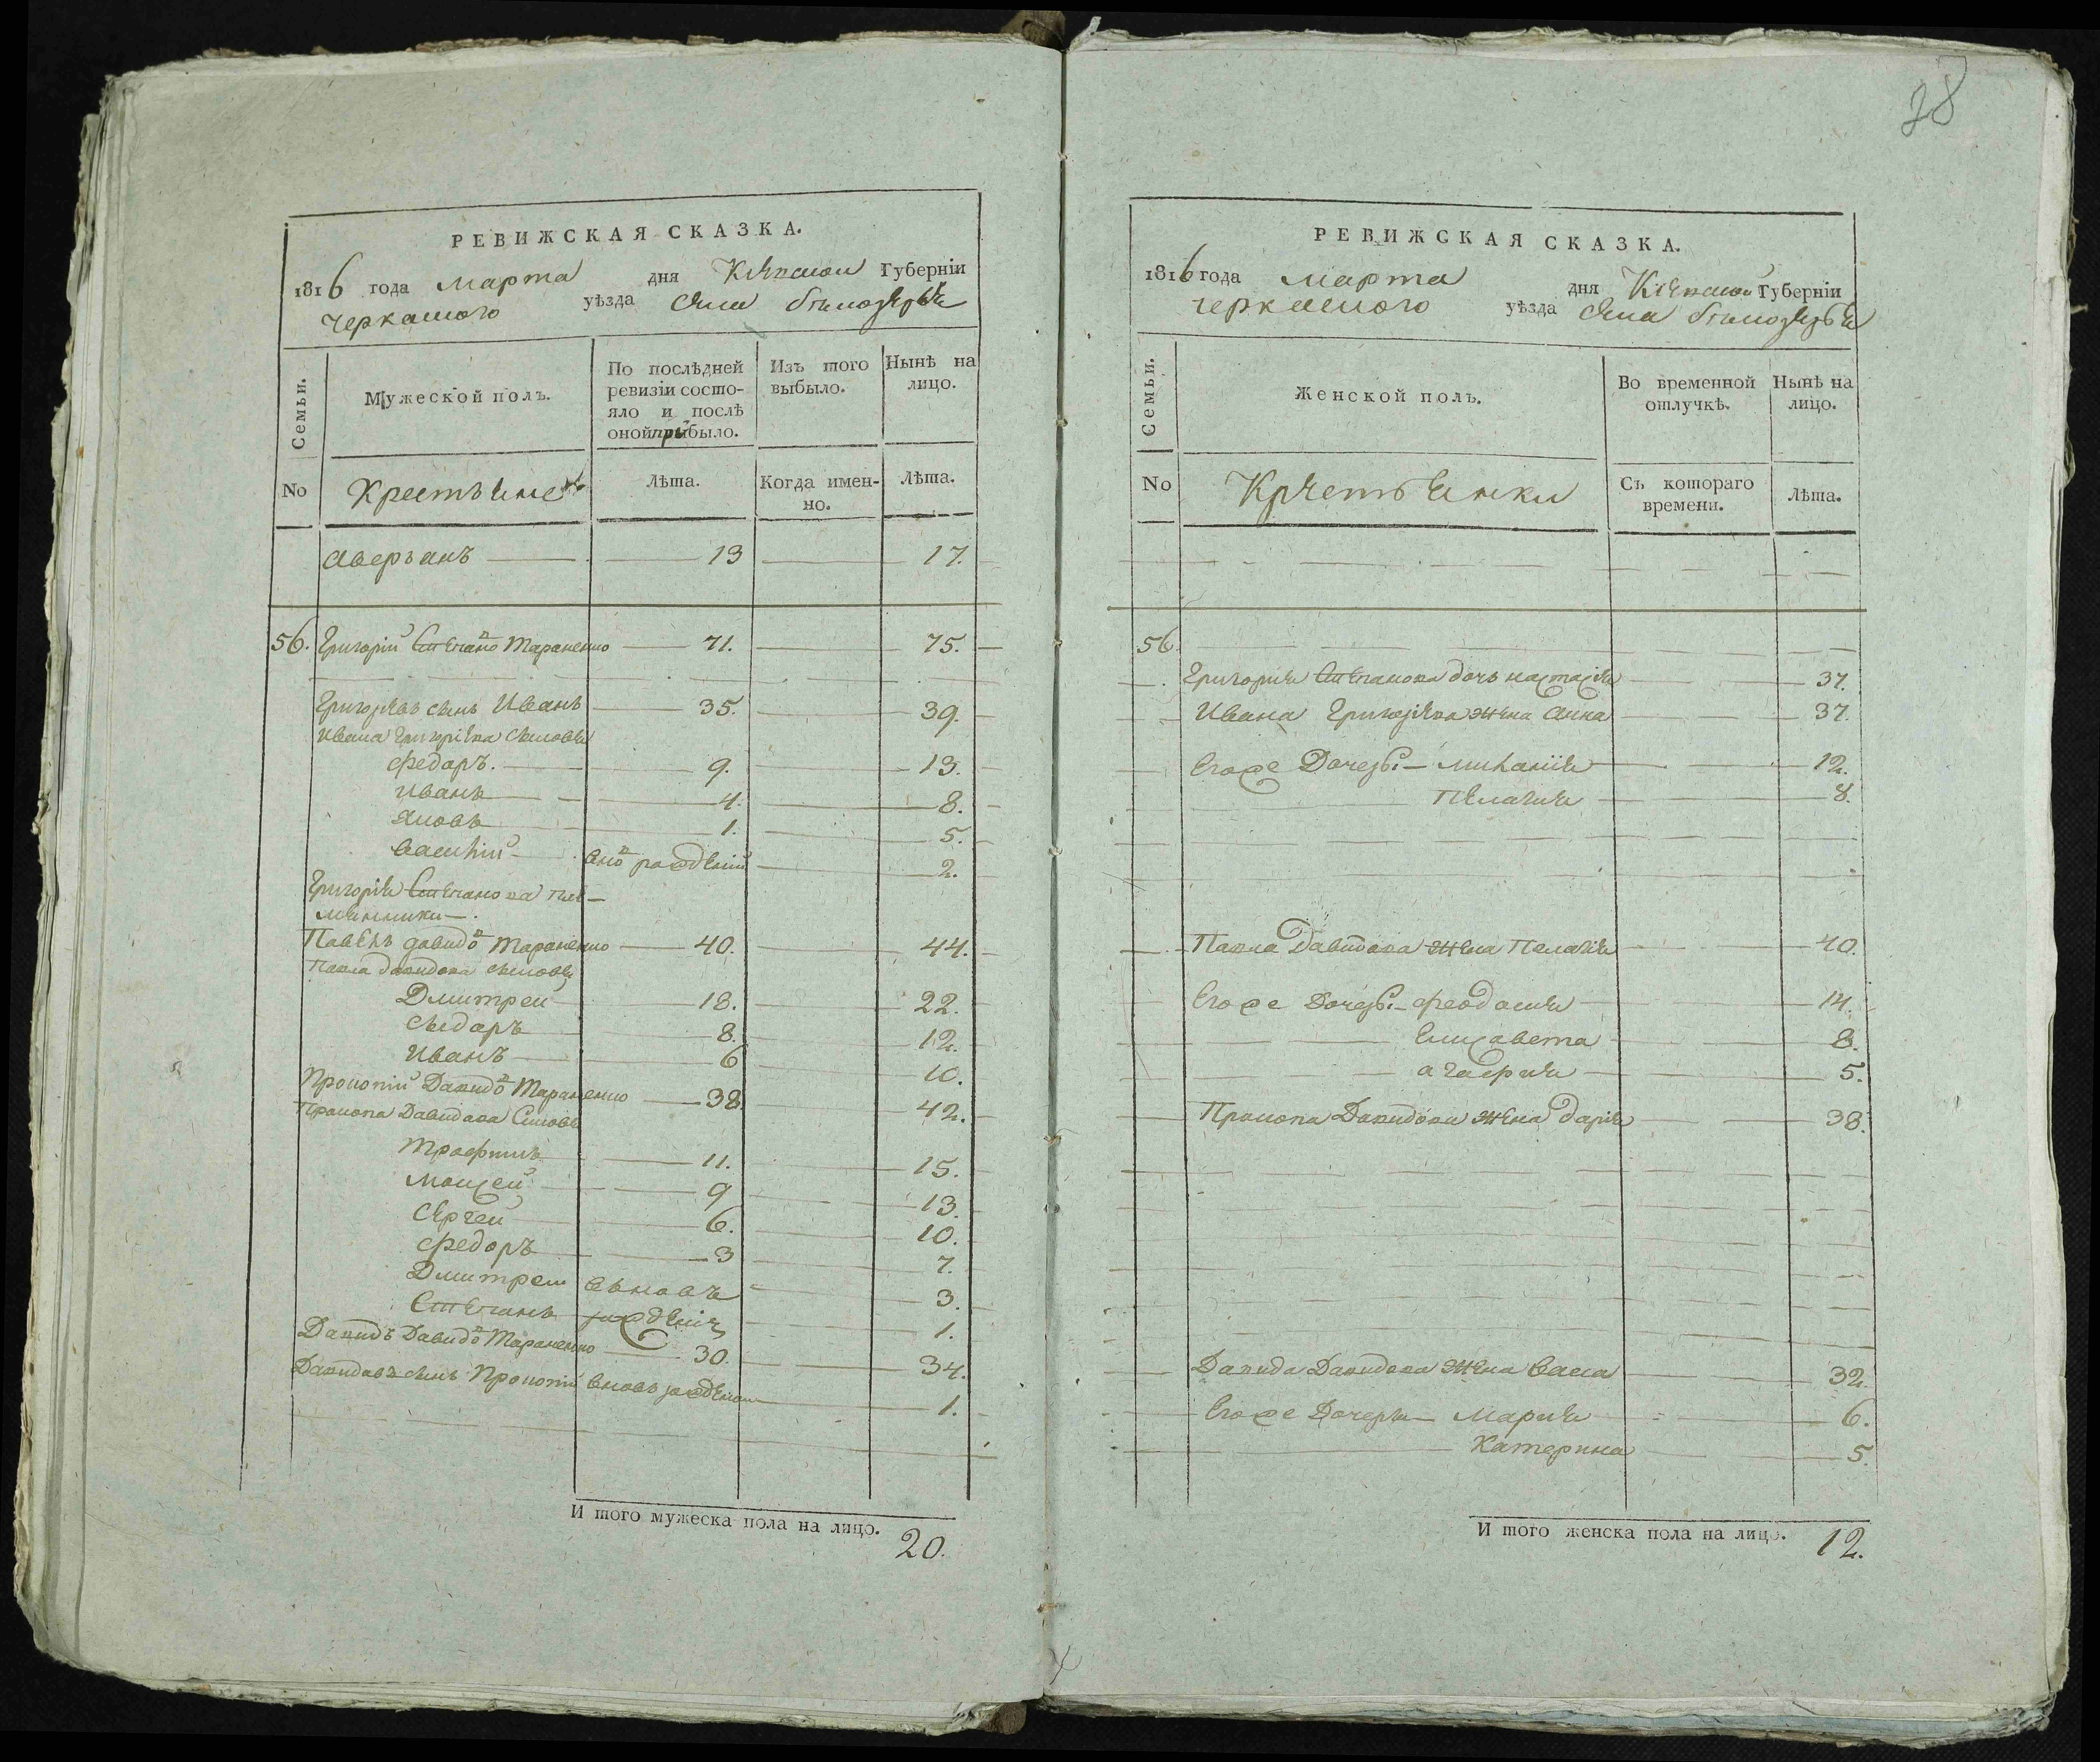 28
РЕВИЖСКАЯ СКАЗКА.
1816 года марта дня Кіевской Губерніи
черкаского уѣзда села бѣлозеръя
Семьи.
Мужеской полъ.
По послѣдней ревизіи состо-
яло и послѣ
оной прибыло.
Изъ того выбыло.
Нынѣ на лицо.
No
Крестьяне
Лѣта.
Когда имен-
но.
Лѣта.
Аверъянъ 13 17.
56. Григорій Степано̂ Тараненко 71. 75.
Григорьевъ сынъ Иванъ 35. 39.
Ивана Григорієва сыновья
федоръ. 9. 13.
Иванъ 4. 8.
Яковъ 1. 5.
Василій вно̂ рожденій 2.
Григорія Степанова пле-
мянники
Павелъ давидо̂ Тараненко 40. 44.
Павла давидова сыновья
Дмитрей 18. 22.
Сидоръ 8. 12.
Иванъ 6 10.
Прокопій Давидо̂ Тараненко 38. 42.
Прокопа Давидова Синовья
Трофимъ 11. 15.
Моисей 9 13.
Сергей 6. 10.
федоръ 3 7.
Дмитрей вьновь 3.
Степанъ рождения 1.
Давидъ Давидо̂ Тараненко 30. 34.
Давидовъ сынъ Прокопій вновь рожденой 1.
И того мужеска пола на лицо. 20.
РЕВИЖСКАЯ СКАЗКА.
1816 года марта дня Кіевской Губерніи
черкаского уѣзда села бѣлозеръя
Семьи.
Женской полъ.
Во временной
отлучкѣ.
Нынѣ на
лицо.
No
Крестьянки
Съ котораго
времени.
Лѣта.
56.
Григорія Степанова дочь настасія 37.
Ивана Григорієва жена Анна 37.
Егоже Дочеръ: 12.
Пелагия 8.
Павла Давидова жена Пелагія 40.
Егоже Дочеръ: феодосия 14.
Елисавета 8.
агафия 5.
Прокопа Давидова жена дарія 38.
Давида Давидова жена Васса 32.
Егоже Дочеры Мария 6.
Катерина 5.
И того женска пола на лицо. 12.